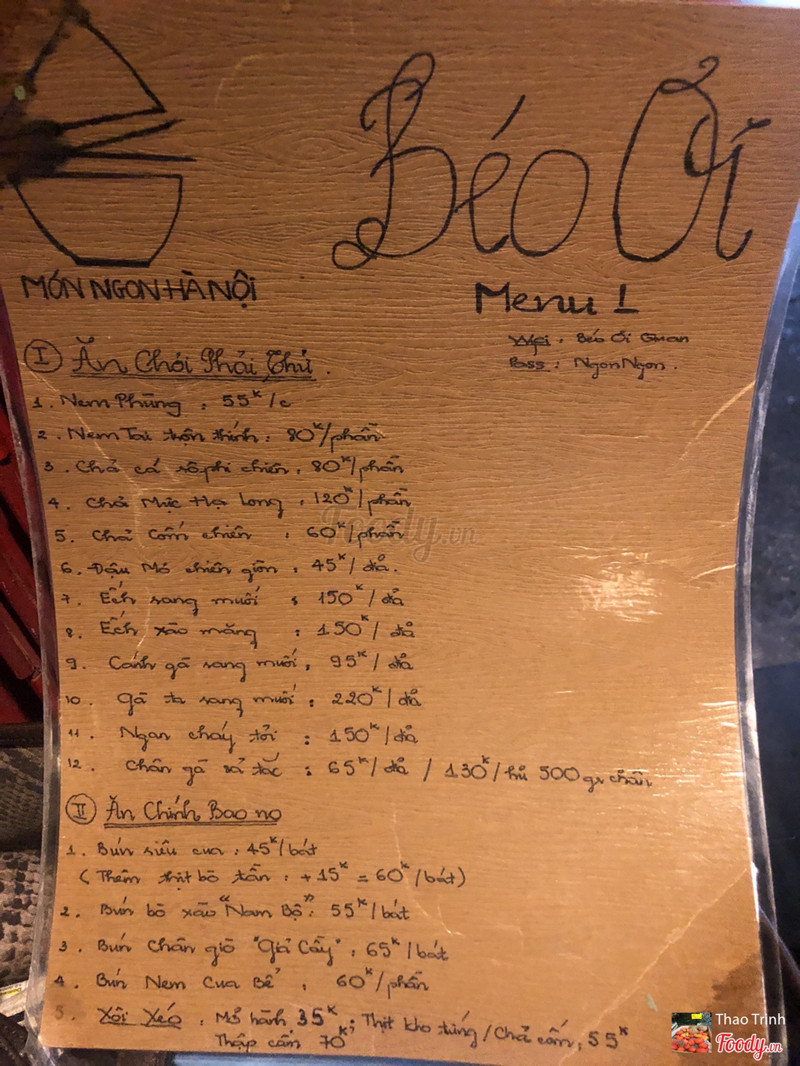 Béo Ơi
MÓN NGON HÀ NỘI
Menu 1
Wifi : Béo Ơi Quan
Pass : NgonNgon .
I Ăn Chơi Phải Thử .
1 . Nem Phùng : 55K/c
2 . Nem Tai trộn thính : 80K/phần
3 . Chả cá rô phi chiên : 80K/phần
4 . Chả Mực Hạ Long : 120K/phần
5 . Chả Cốm chiên : 60K/phần
6 . Đậu Mơ chiên giòn : 45K/đĩa.
7 . Ếch rang muối : 150K/đĩa
8 . Ếch xào măng : 150K/đĩa
9 . Cánh gà rang muối : 95K/đĩa
10 . Gà ta rang muối : 220K/đĩa
11 . Ngan cháy tỏi : 150K/đĩa
12 . Chân gà sả tắc : 65K/đĩa / 130K/hũ 500gr chân
II Ăn Chính Bao no
1 . Bún riêu cua : 45K/bát
( Thêm thịt bò tần : +15K = 60K/bát)
2 . Bún bò xào "Nam Bộ" : 55K/bát
3 . Bún Chân giò "Giả Cầy" : 65K/bát
4 . Bún Nem Cua Bể : 60K/phần
5 . Xôi Xéo : Mỡ hành 35K ; Thịt kho trứng/Chả cốm : 55K
Thập cẩm 70K
Foody.vn
Thao Trinh
Foody.vn